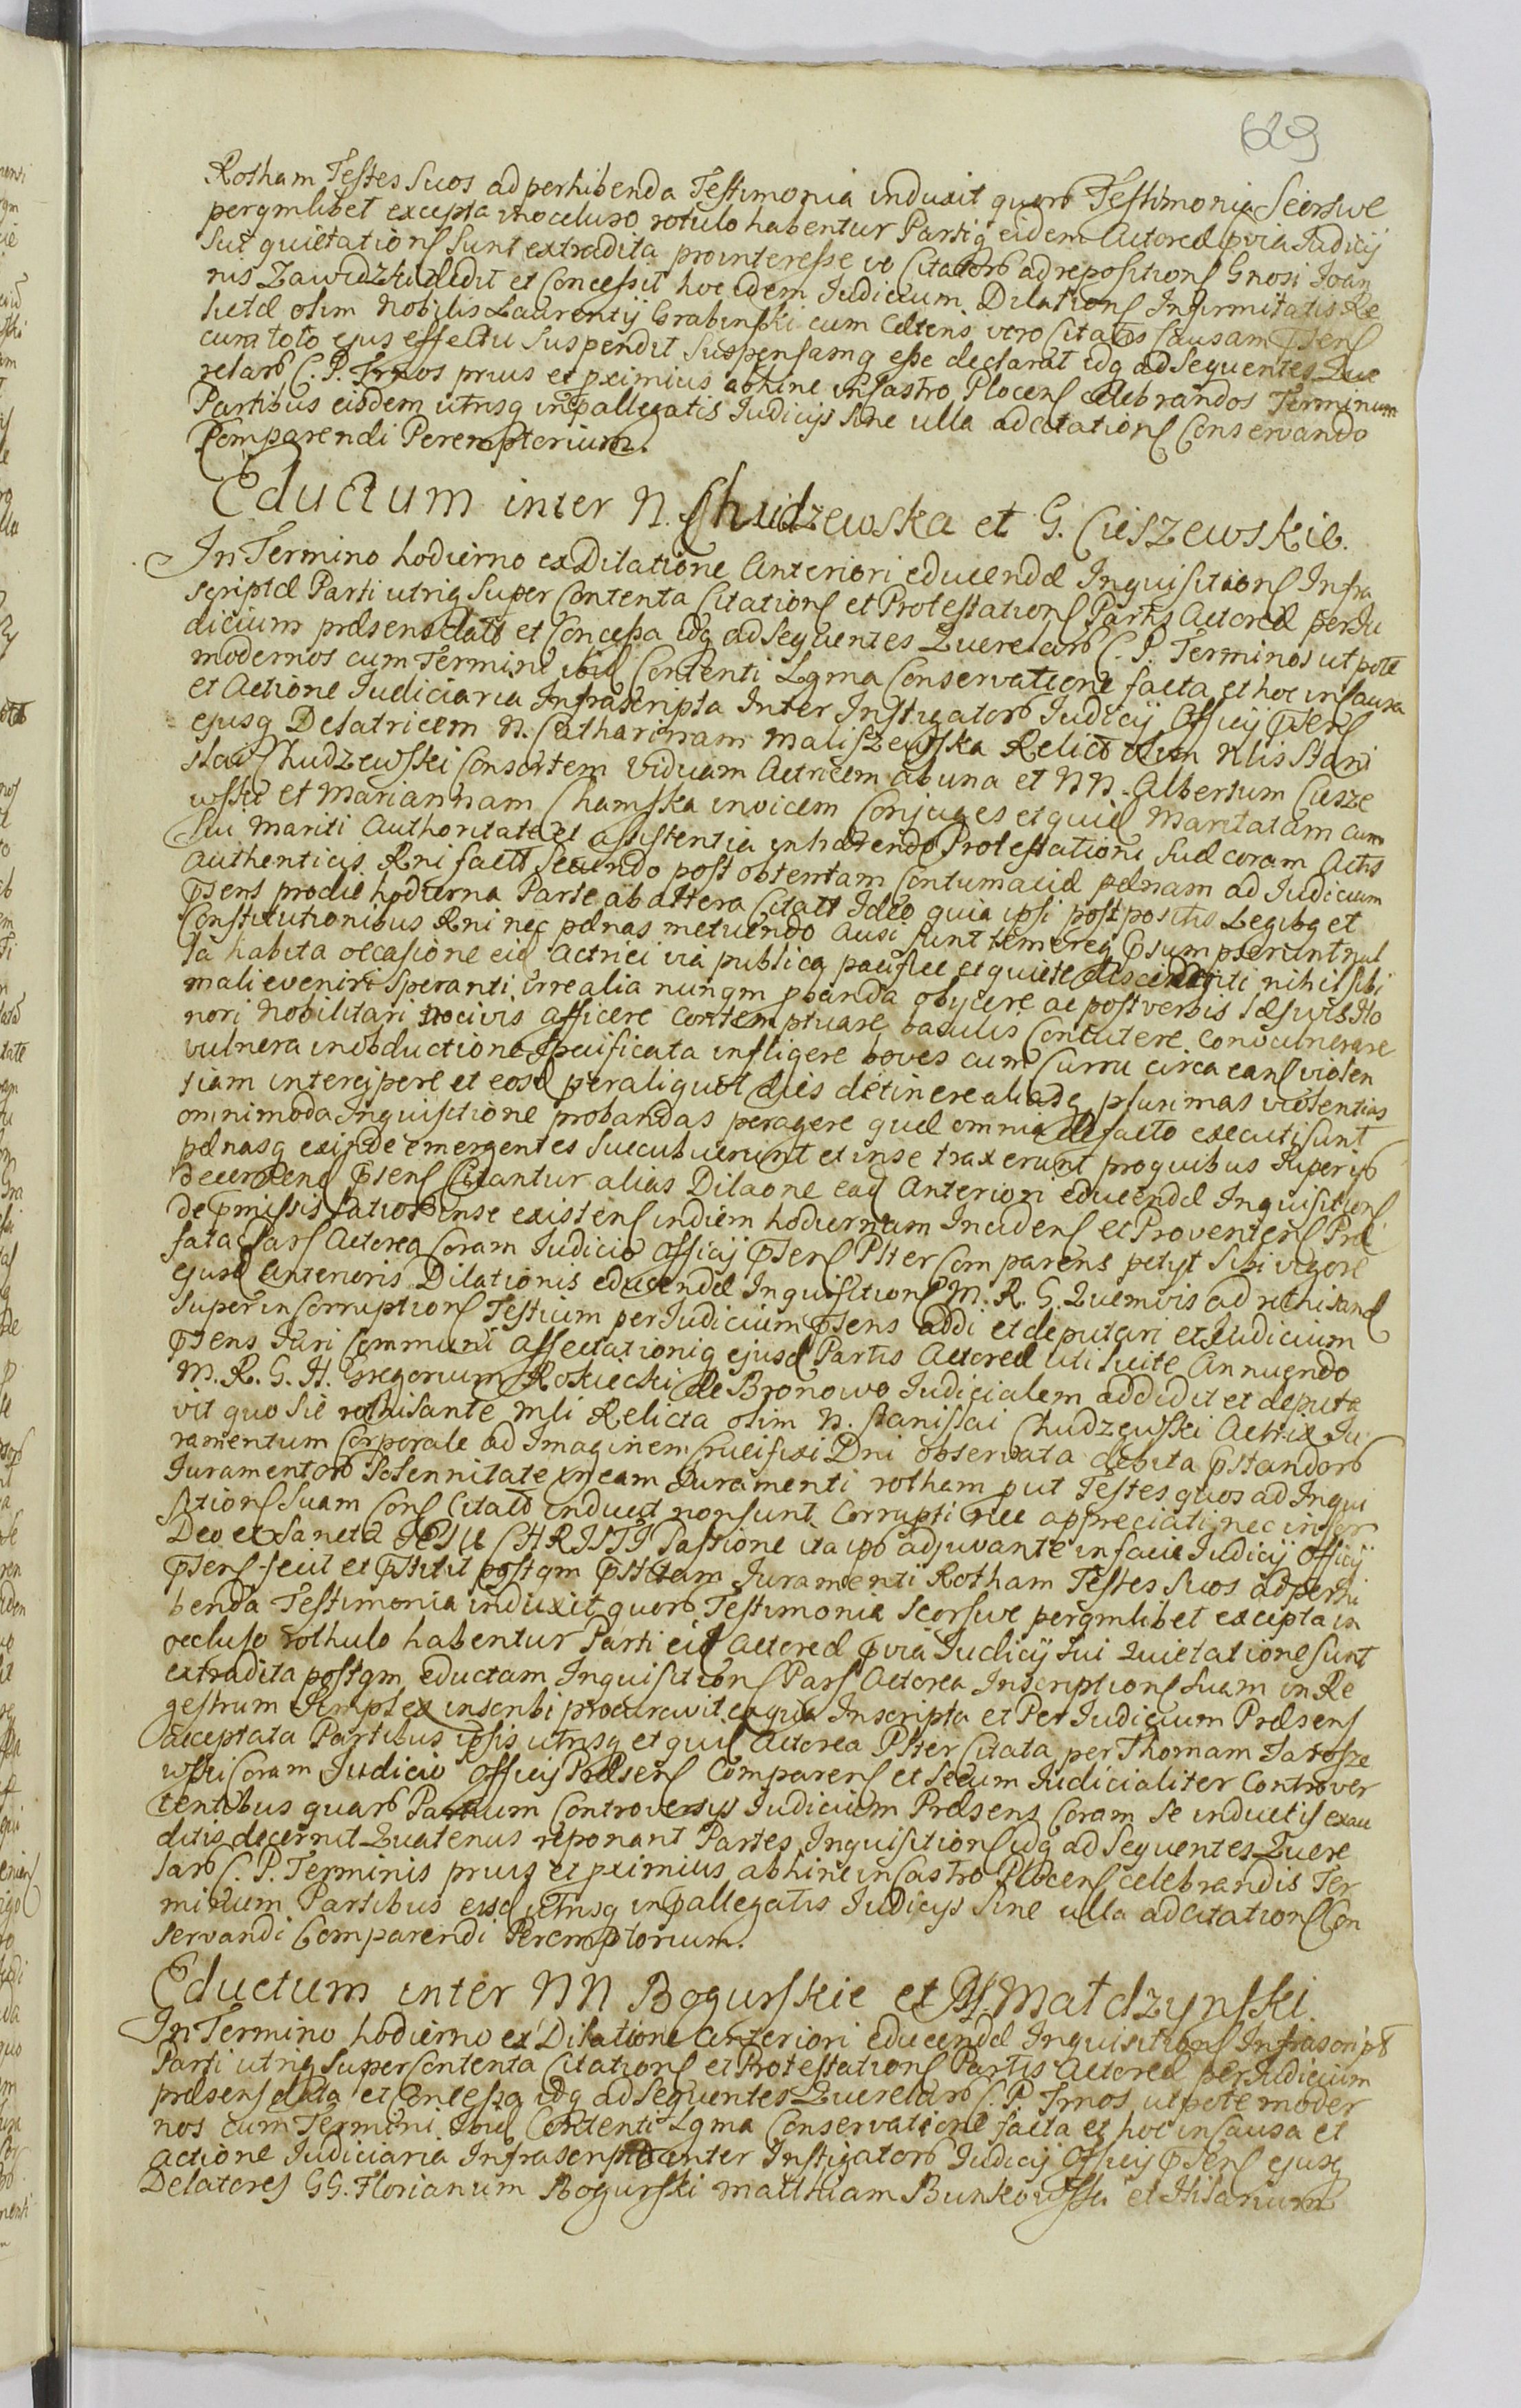 629
Rotham Testes Suos ad perhibenda Testimonia induxit quorb Testimonia Seorsive
perqmlibet excepta inocluso rotulo habentur Partiq eidem Actoreæ pvia Iudicij
Sui quietations Sunt extradita prointeresse vo Citatorb ad repositions Gnosi Ioan
nis Zawidzki dedit et Concessit hoc idem Iudicium Dilations Infirmitatis Re
lictæ olim Nobilis Laurentij Grabinski cum Cæteris vero Citatis Causam Psens
cum toto ejus effectu Suspendit Suspensamq esse declarat idq ad Sequentes Que
relarb C. P. Trnos prius et pximius abhinc in Castro Plocens celebrandos Terminum
Partibus eisdem utrisq in pallegatis Iudicijs Sine ulla adcitations Conservando
Comparendi Peremptorium.
Eductum inter N. Chudzewska et G. Cieszewskie.
In Termino hodierno ex Dilatione Anteriori educendæ Inquisitions Infra
scriptæ Parti utriq Super Contenta Citations et Protestations Partis Actoreæ per Iu
dicium præsens data et Concessa idq ad Sequentes Querelarb C. P. Terminos utpote
modernos cum Termini ibid Contenti Lgma Conservatione facta et hoc in Causa
et Actione Iudiciaria Infrascripta Inter Instigatorb Iudicij Officij Psens
ejusq Delatricem N. Catharinam Maliszewska Relict olim Nlis Stani
slai Chudzewski Consortem Viduam Actricem ab una et NN. Albertum Ciesze
wski et Mariannam Chamska invicem Conjuges et quid Maritatam cum
Sui Mariti Authoritate et assistentia inhærendo Protestationi Suæ coram Actis
Authenticis Rni factæ Secundo post obtentam Contumaciæ pænam ad Iudicium
Psens prodie hodierna Parte ab altera Citatt Ideo quia ipsi post positis Legibq et
Constitutionibus Rni nec pænas metuendo ausi Sunt temereq Psumpserunt nul
la habita occasione eid Actrici via publica pacifice et quiete discedenti nihil sibi
mali eveniri Speranti irrealia nunqm pbanda objcere ac post verbis læsivis Ho
nori Nobilitari nocivis afficere contemptuare baculis Concutere convulnerare
vulnera inobductione specificata infligere boves cum Curru circa eans violen
tiam intercipere et eosd per aliquot dies detinere aliasq plurimas violentias
omnimoda Inquisitione probandas peragere quæ omnia de facto executi sunt
pænasq exinde emergentes Succubuerunt et in se traxerunt proquibus Superijs
decernend Psens Citantur alias Dilaone ead Anteriori educendæ Inquisitions
de pmissis latiorb inse existens in diem hodiernam Incidens et Proventens Præ
fata Pars Actorea Coram Iudicio Officij Psens Plter Comparens petyt Sibi vigore
ejusd anterioris Dilationis educendæ Inquisitions M. R. G. Quemvis ad rothisand
Super incorruptions Testium per Iudicium Psens addi et deputari et Iudicium
Psens Iuri Communi Affectationiq ejusd Partis Actoreæ uti licite Annuendo
M. R. G. H. Gregorium Rokiecki de Bronowo Iudicialem addidit et deputa
vit quo Sic rothisante Mli Relicta olim N. Stanislai Chudzewski Actrix Iu
ramentum Corporale ad Imaginem Crucifixi Dni observata debita Pstandorb
Iuramentorb Solennitate in eam Iuramenti rotham put Testes quos ad Inqui
sitions Suam Cons Citatt induit non sunt Corrupti nec appreciati nec infor
Deo et Sancta IESU CHRISTI Passione ita ipso adjuvante in facie Iudicij Officij
Psens fecit et Pstitit postqm Pstitam Iuramenti Rotham Testes Suos ad perhi
benda Testimonia induxit quorb Testimonia Seorsive perqmlibet excepta in
occluso rothulo habentur Parti eid Actoreæ pvia Iudicij Sui Quietatione sunt
extradita postqm eductam Inquisitions Pars Actorea Inscriptions Suam in Re
gestrum Simplex inscribi procuravit eaqua Inscripta et Per Iudicium Præsens
acceptata Partibus ipsis utrisq et quid Actorea Plter Citata per Thomam Jarosze
wski Coram Iudicio Officij Præsens Comparens et Secum Iudicialiter Controver
tentibus quarb Partium Controversijs Iudicium Præsens Coram Se inductis exau
ditis decernit Quatenus reponant Partes Inquisitions idq ad Sequentes Quere
larb C. P. Terminis prius et pximius abhinc in Castro Plocens celebrandis Ter
minum Partibus eisd utrisq in pallegatis Iudicijs Sine ulla adcitations Con
servandi Comparendi Peremptorium.
Eductum inter NN Bogurskie et Matdzynski.
In Termino hodierno ex Dilatione Anteriori educendæ Inquisitions Infrascript
Parti utriq Super Contenta Citations et Protestations Partis Actoreæ per Iudicium
præsens data et Concessa idq ad Sequentes Querelarb C. P. Trnos utpote moder
nos cum Termini ibid Contenti Lgma Conservatione facta et hoc in Causa et
Actione Iudiciaria Infrascripta inter Instigatorb Iudicij Officij Psens ejusq
Delatores GG. Florianum Bogurski Matthiam Bunkowski et Hilarium